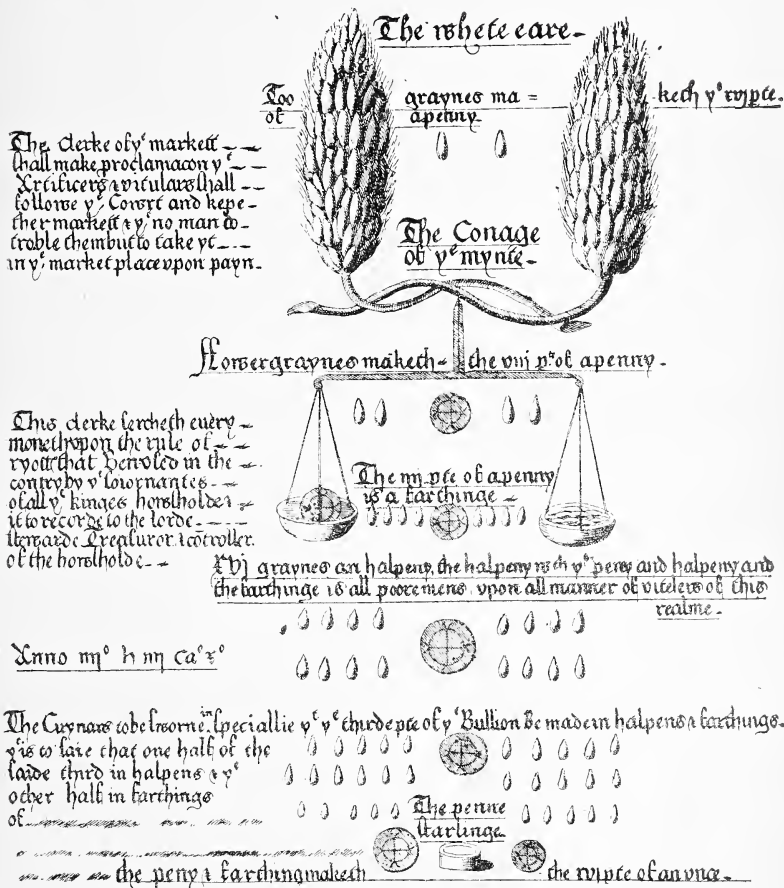 The whete eare
Too graynes ma = keth yᵉ xvjpte.
of apenny
The clerke of yᵉ markett
shall make proclamacon yᵗ
Artificers & vitulars shall
followe yᵉ Cowrt and kepe
ther markett & yᵗ no man to
troble them but to take yt
in yᵉ market place vpon payn
The Conage
of yᵉ mynte
ffower graynes maketh the viij pᵗ of apenny
This clerke sercheth euery
moneth vpon the rule of
that be vsed in the
contry by yᵉ
of all yᵉ kinges howsholde &
it to recorde to the lorde
stewarde Treasuror & cōtroller
of the howsholde
The iiij pte of apenny
is a farthinge
XVj graynes an halpeny, the halpeny wᵗʰ yᵉ peny and halpeny and
the farthinge is all pooremens vpon all manner of vitelers of this
realme
Anno iijᵒ h iiij Caᵒ xᵒ
The Cuynars to be sworne in speciallie yᵗ yᵉ thirde pte of yᵉ Bullion be made in halpens & farthings
yᵗ is to saie that one half of the
saide third in halpens & yᵉ
other half in farthings
of
The penne
starlinge
the peny & farthing maketh the xvjpte of an vnce